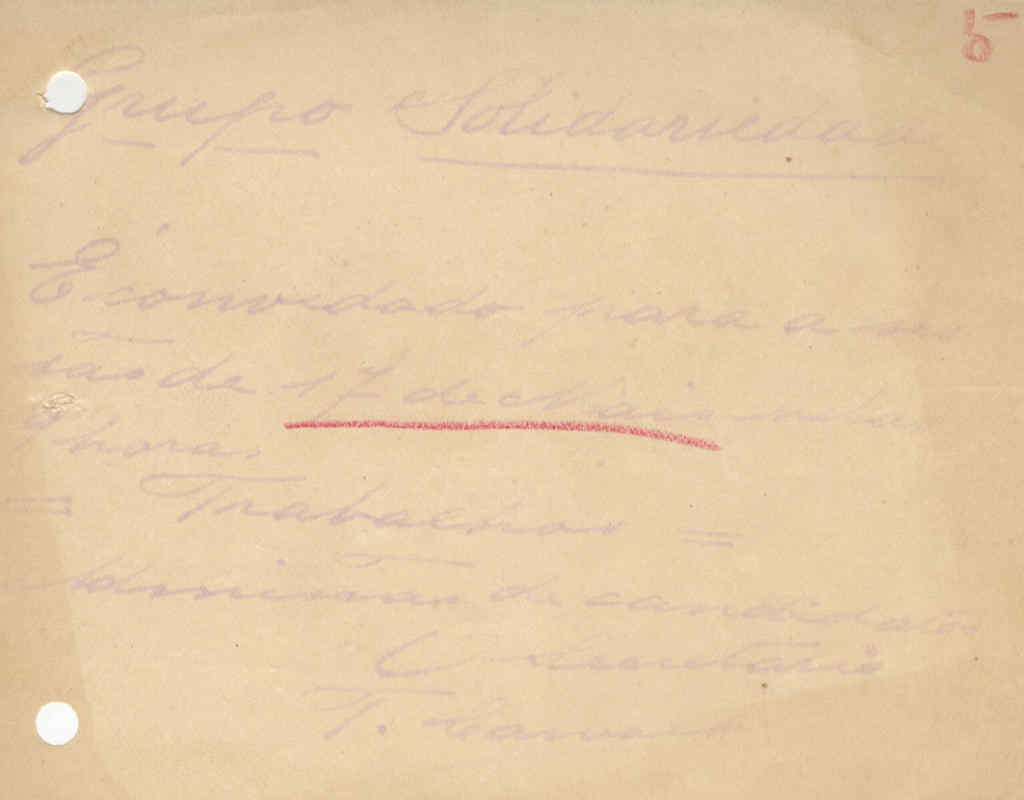 5
Grupo Solidariedade
É convidado para a reu
são de 17 de Maio
9 horas
= Trabalhos =
Admissão de candidatos
O Secretario
T.